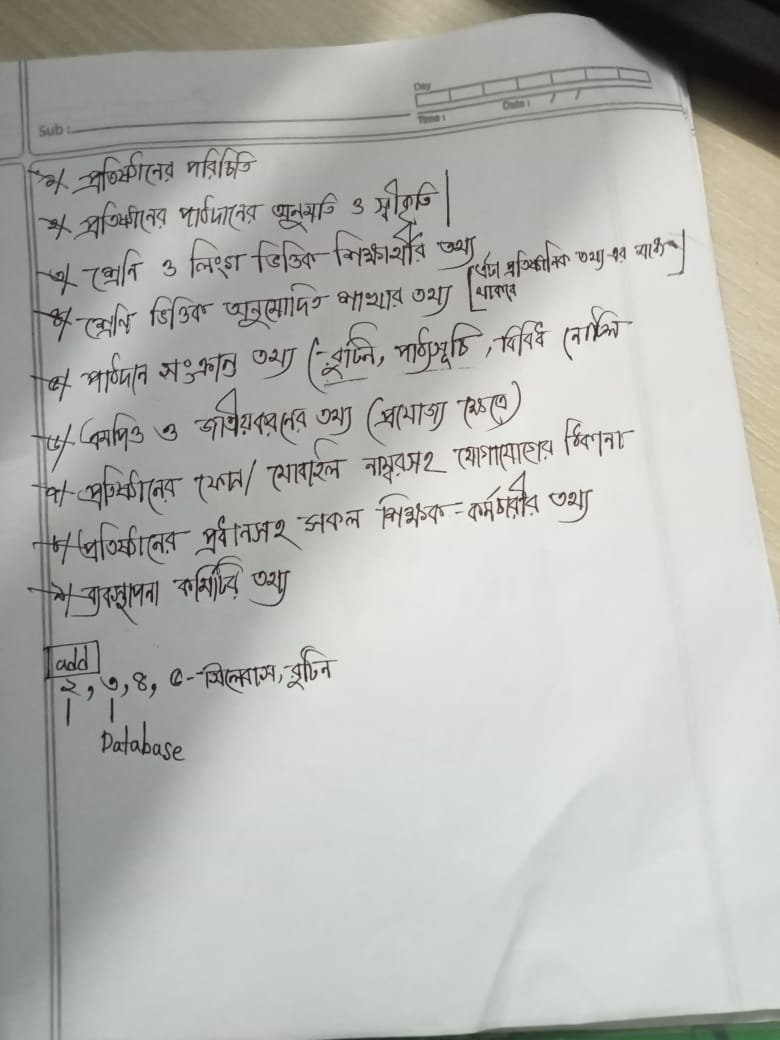 Day
Sub :
Time :
Date : / /
১। প্রতিষ্ঠানের পরিচিতি
২। প্রতিষ্ঠানের পাঠদানের অনুমতি ও স্বীকৃতি।
৩। শ্রেনি ও লিংগ ভিত্তিক শিক্ষার্থীর তথ্য
৪। শ্রেনি ভিত্তিক অনুমোদিত শাখার তথ্য [এটা প্রতিষ্ঠানিক তথ্য এর মধ্যে থাকবে]
৫। পাঠদান সংক্রান্ত তথ্য (রুটিন, পাঠ্যসূচি, বিবিধ নোটিশ
৬। এমপিও ও জাতীয়করনের তথ্য (প্রযোজ্য ক্ষেত্রে)
৭। প্রতিষ্ঠানের ফোন/ মোবাইল নাম্বরসহ যোগাযোগের ঠিকানা
৮। প্রতিষ্ঠানের প্রধানসহ সকল শিক্ষক-কর্মচারীর তথ্য
৯। ব্যবস্থাপনা কমিটির তথ্য
add
২, ৩, ৪, ৫-সিলেবাস, রুটিন
Database